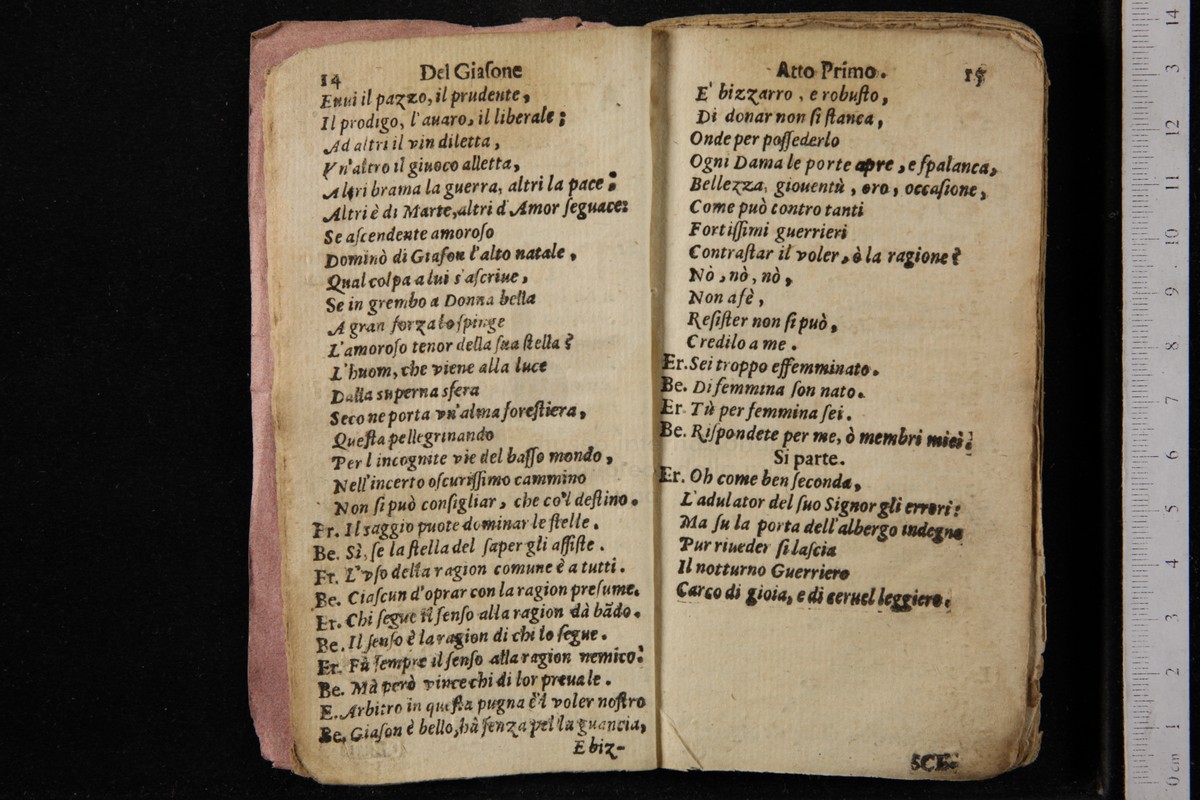 14 Del Giaſone
Euui il pazzo, il prudente,
Il prodigo, l'auaro, il liberale;
Ad altri il vin diletta,
Vn'altro il giuoco alletta,
Altri brama la guerra, altri la pace:
Altri è di Marte, altri d'Amor ſeguace:
Se aſcendente amoroſo
Dominò di Giaſon l'alto natale,
Qual colpa a lui s'aſcriue,
Se in grembo a Donna bella
A gran forza lo ſpinge
L'amoroſo tenor della ſua ſtella?
L'huom, che viene alla luce
Dalla superna sfera
Seco ne porta vn'alma foreſtiera,
Queſta pellegrinando
Per l incognite vie del baſſo mondo,
Nell'incerto oſcuriſſimo cammino
Non ſi può conſigliar, che co'l deſtino.
Er. Il saggio puote dominar le ſtelle.
Be. Sì, ſe la ſtella del ſaper gli aſſiſte.
Er. L'vſo della ragion comune è a tutti.
Be. Ciaſcun d'oprar con la ragion preſume.
Er. Chi ſegue il ſenſo alla ragion dà bādo.
Be. Il ſenſo è la ragion di chi lo ſegue.
Er. Fù ſempre il ſenſo alla ragion nemico:
Be. Mà però vince chi di lor preuale.
E. Arbitro in queſta pugna è'l voler noſtro
Be. Giaſon è bello, hà ſenza pel la guancia,
E biz-
Atto Primo. 15
E' bizzarro, e robuſto,
Di donar non ſi ſtanca,
Onde per poſſederlo
Ogni Dama le porte apre, e ſpalanca,
Bellezza, giouentù, oro, occaſione,
Come può contro tanti
Fortiſſimi guerrieri
Contraſtar il voler, ò la ragione?
Nò, nò, nò,
Non afè,
Reſiſter non ſi può,
Credilo a me.
Er. Sei troppo effemminato.
Be. Di femmina ſon nato.
Er. Tù per femmina ſei.
Be. Riſpondete per me, ò membri miei:
Si parte.
Er. Oh come ben ſeconda,
L'adulator del ſuo Signor gli errori:
Ma ſu la porta dell'albergo indegno
Pur riueder ſi laſcia
Il notturno Guerriero
Carco di gioia, e di ceruel leggiero.
SCE-